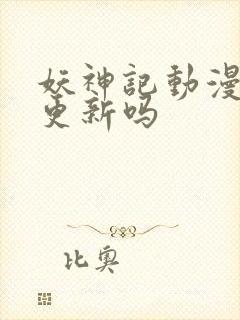 妖神記動漫
更新吗
比奥